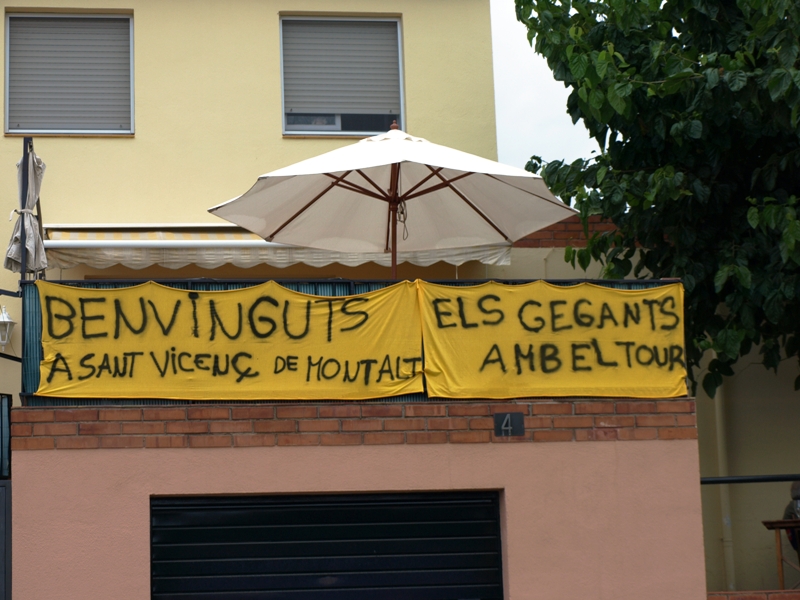 BENVINGUTS
A SANT VICENÇ DE MONTALT
ELS GEGANTS
AMB EL TOUR
4